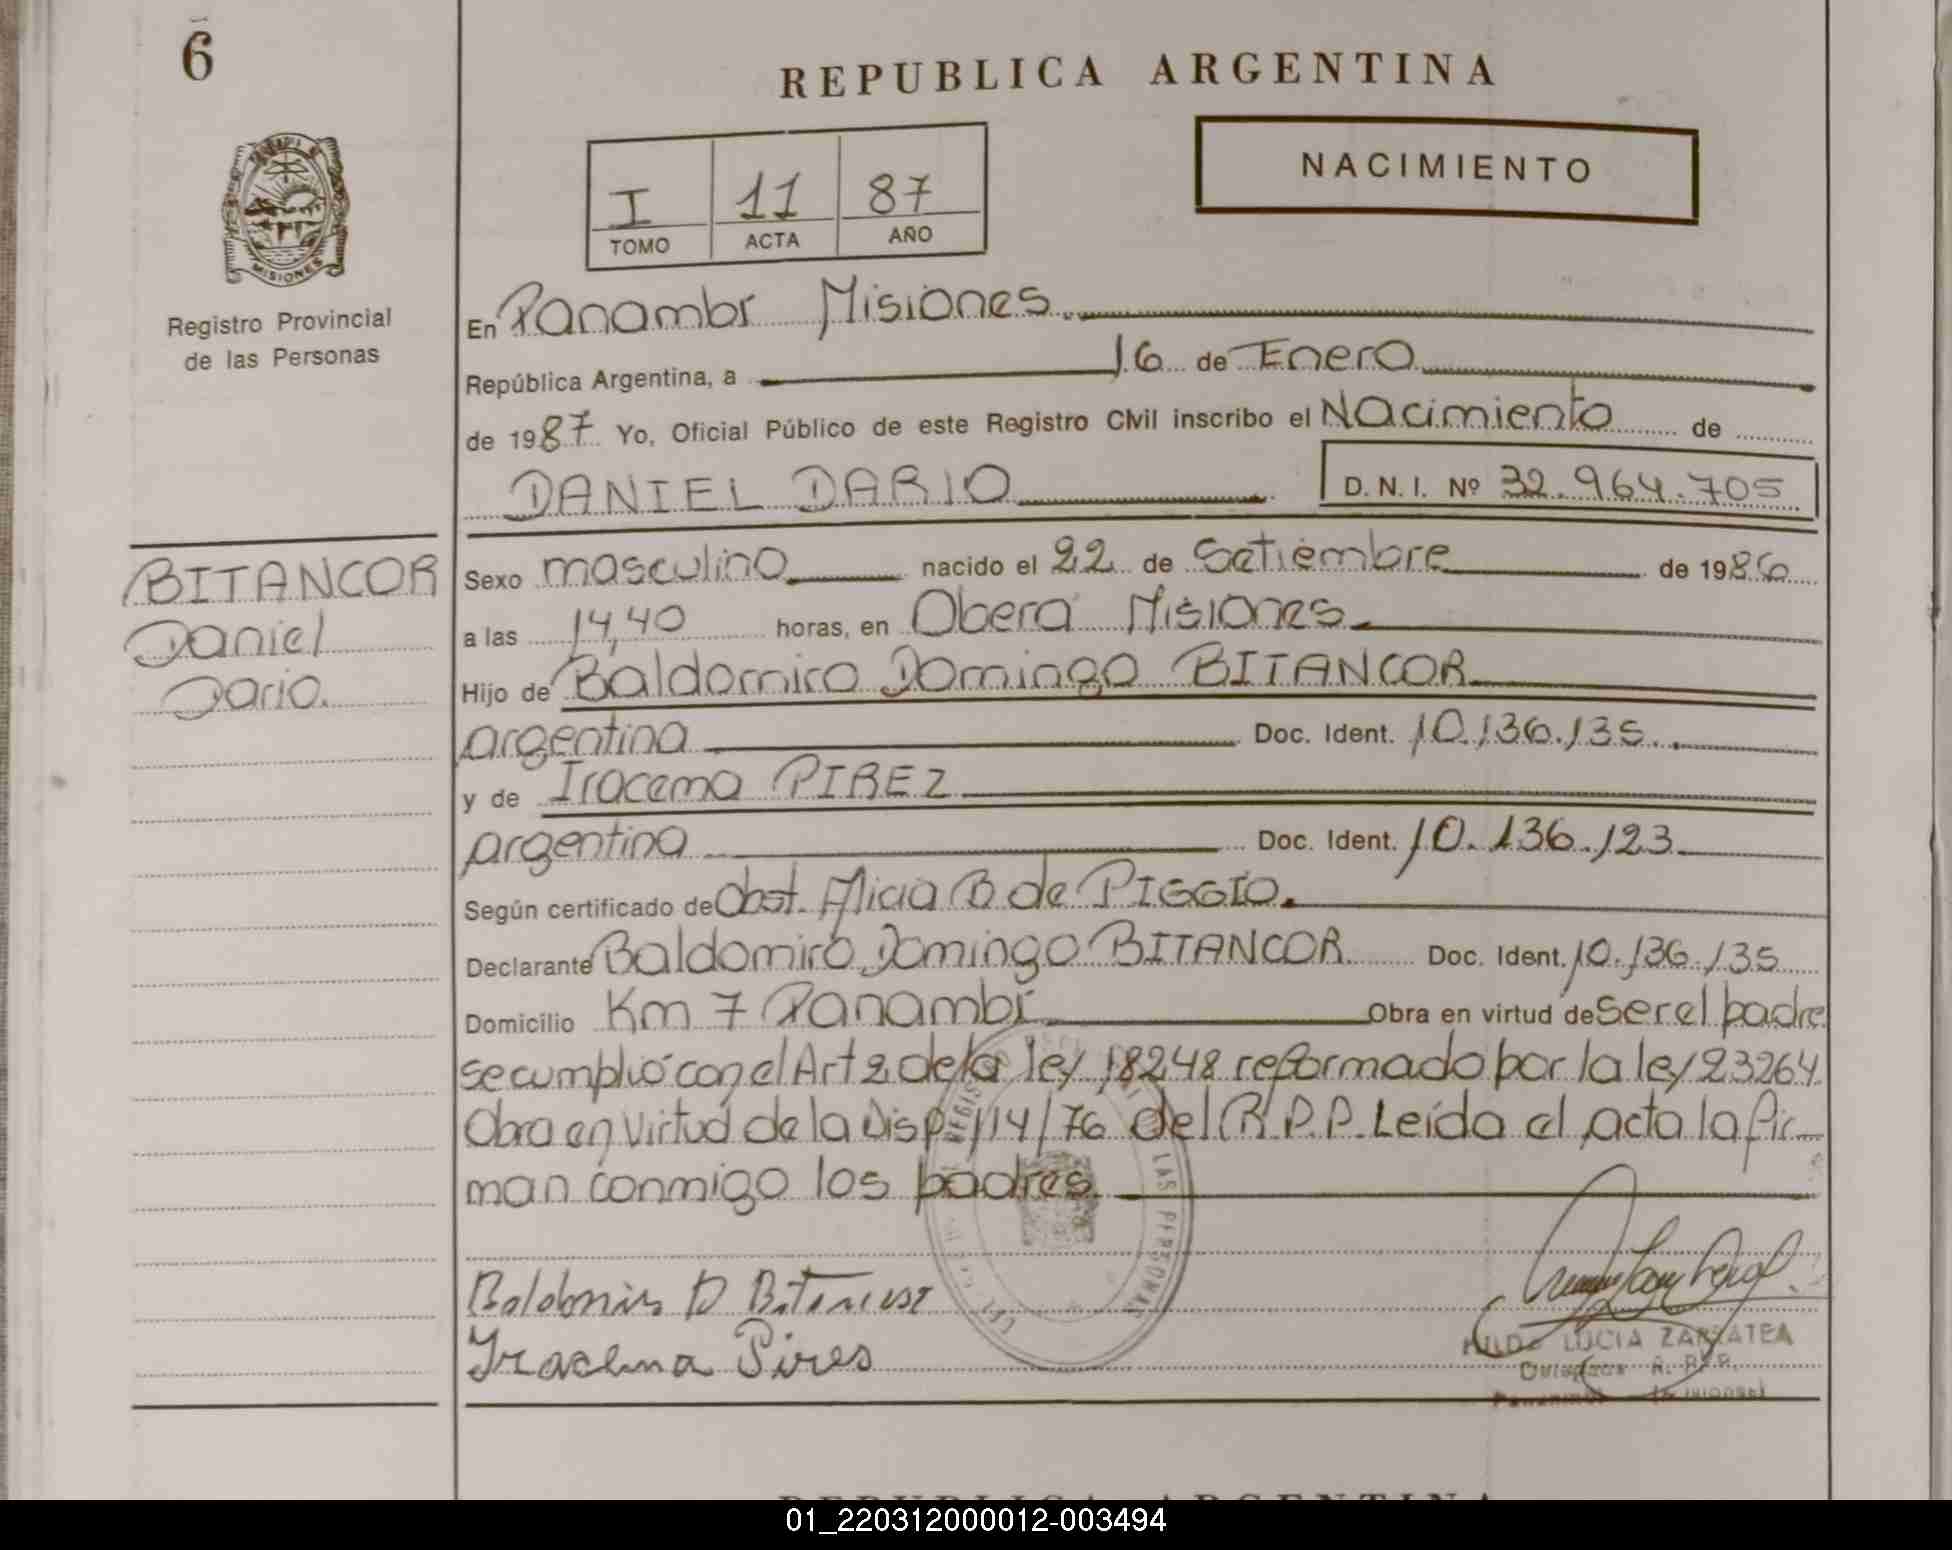 6
REPUBLICA ARGENTINA
I 11 87
TOMO ACTA AÑO
NACIMIENTO
MISIONES
Registro Provincial
de las Personas
En Panambí Misiones.
República Argentina, a 16 de Enero
de 1987 Yo, Oficial Público de este Registro Civil inscribo el Nacimiento de
DANIEL DARIO D. N. I. Nº 32.964.705
BITANCOR
Daniel
Dario.
Sexo masculino nacido el 22 de Setiembre de 1986
a las 14,40 horas, en Oberá Misiones.
Hijo de Baldomiro Domingo BITANCOR
argentina Doc. Ident. 10.136.135.
y de Iracema PIREZ
argentina Doc. Ident. 10.136.123
Según certificado de Obst. Alicia B de PIGGIO.
Declarante Baldomiro Domingo BITANCOR Doc. Ident. 10.136.135
Domicilio Km 7 Panambí Obra en virtud de ser el padre
se cumplió con el Art 2 de la ley 18248 reformado por la ley 23264.
Obra en virtud de la Disp. 114/76 del R.P.P. Leída el acta la fir-
man conmigo los padres.
LAS PERSONAS
Baldomiro D Bitancor
Iracema Pires
HILDA LUCIA ZARZATEA
R.P.P.
Panambí (Misiones)
01_220312000012-003494